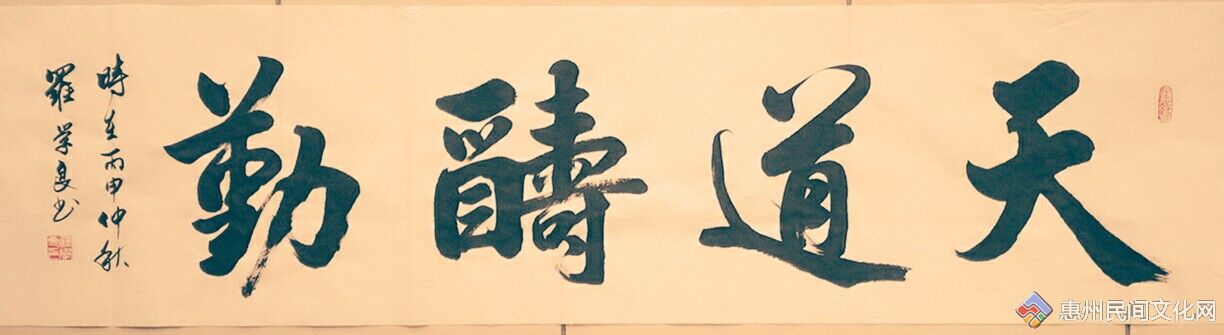 天道酬勤
時在丙申仲秋
羅学良书
惠州民间文化网